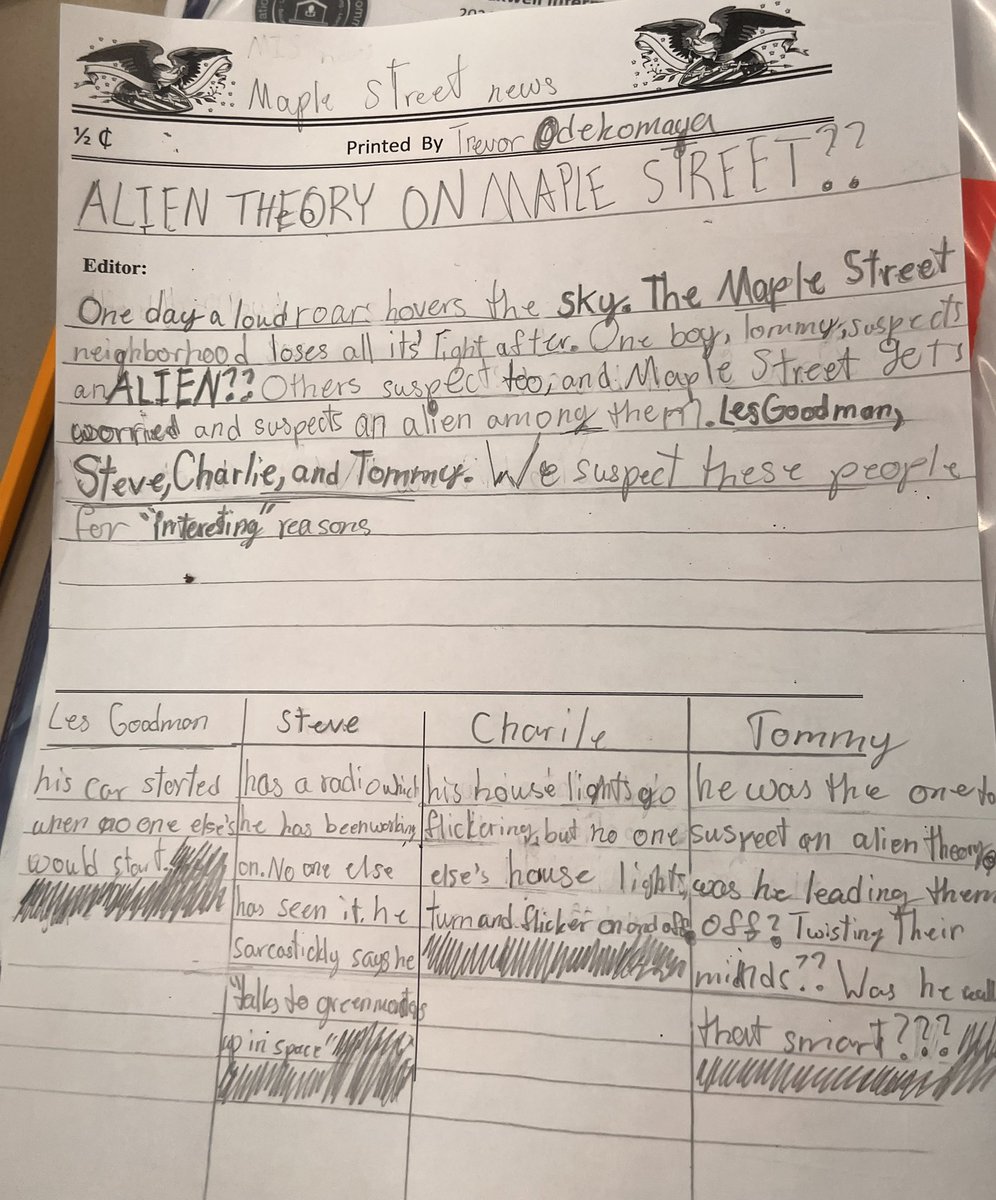 Maple Street news
½ ¢
Printed By Trevor Odekomaya
ALIEN THEORY ON MAPLE STREET??
Editor:
One day a loud roar hovers the sky. The Maple Street
neighborhood loses all its' light after. One boy, Tommy, suspects
an ALIEN?? Others suspect too, and Maple Street gets
worried and suspects an alien among them. Les Goodman,
Steve, Charlie, and Tommy. We suspect these people
for "interesting" reasons
Les Goodman
his car started
when no one else's
would start.
Steve
has a radio which
he has been working
on. No one else
has seen it. he
sarcastickly says he
"talks to green
up in space"
Charile
his house lights go
flickering, but no one
else's house lights
turn and flicker on and off.
Tommy
he was the one to
suspect an alien theory
was he leading them
off? Twisting Their
minds?? Was he
that smart???